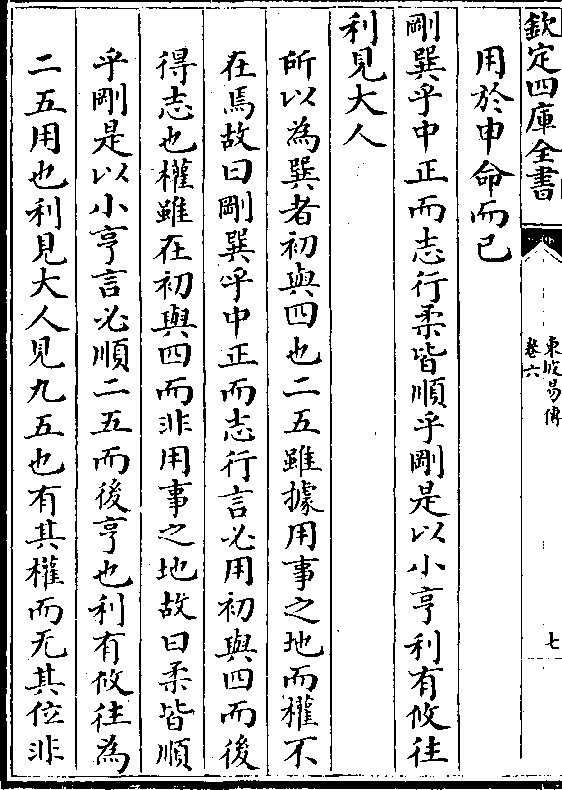 欽定四庫全書
東坡易傳
卷六
七
用於申命而已
剛巽乎中正而志行柔皆順乎剛是以小亨利有攸往
利見大人
所以為巽者初與四也二五雖據用事之地而權不
在焉故曰剛巽乎中正而志行言必用初與四而後
得志也權雖在初與四而非用事之地故曰柔皆順
乎剛是以小亨言必順二五而後亨也利有攸往為
二五用也利見大人見九五也有其權而无其位非